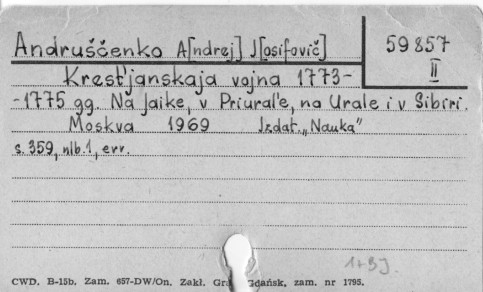 Andruščenko A[ndrej] J[osifovič]
59857
II
Krest'janskaja vojna 1773-
-1775 gg. Na Jaike, v Priural'e, na Urale i v Sibiri.
Moskva 1969 Izdat. „Nauka"
s. 359, nlb. 1, err.
CWD. B-15b. Zam. 657-DW/On. Zakł. Gdańsk, zam. nr 1795.